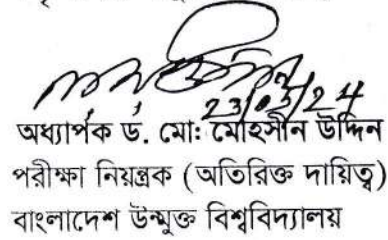 23/05/24
অধ্যাপক ড. মো: মোহসীন উদ্দিন
পরীক্ষা নিয়ন্ত্রক (অতিরিক্ত দায়িত্ব)
বাংলাদেশ উন্মুক্ত বিশ্ববিদ্যালয়